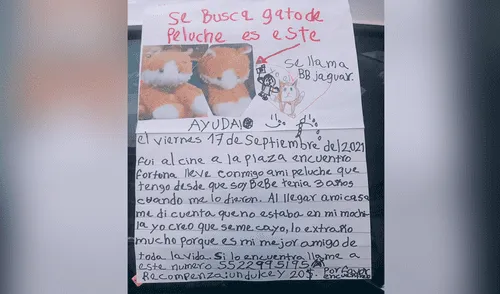 SE BUSCA gato de
Peluche es este
se llama
BB jaguar.
AYUDA
el viernes 17 de Septiembre del 2021
fui al cine a la plaza encuentro
fortuna lleve conmigo ami peluche que
tengo desde que soy BeBe tenia 3 años
cuando me lo dieron. Al llegar ami casa
me di cuenta que no estaba en mi mochi
la yo creo que se me cayo, lo extraño
mucho porque es mi mejor amigo de
toda la vida. Si lo encuentra llame a
este numero 5522995195
Recompenza: un dulce y 20$. Por favor
encuentrenlo